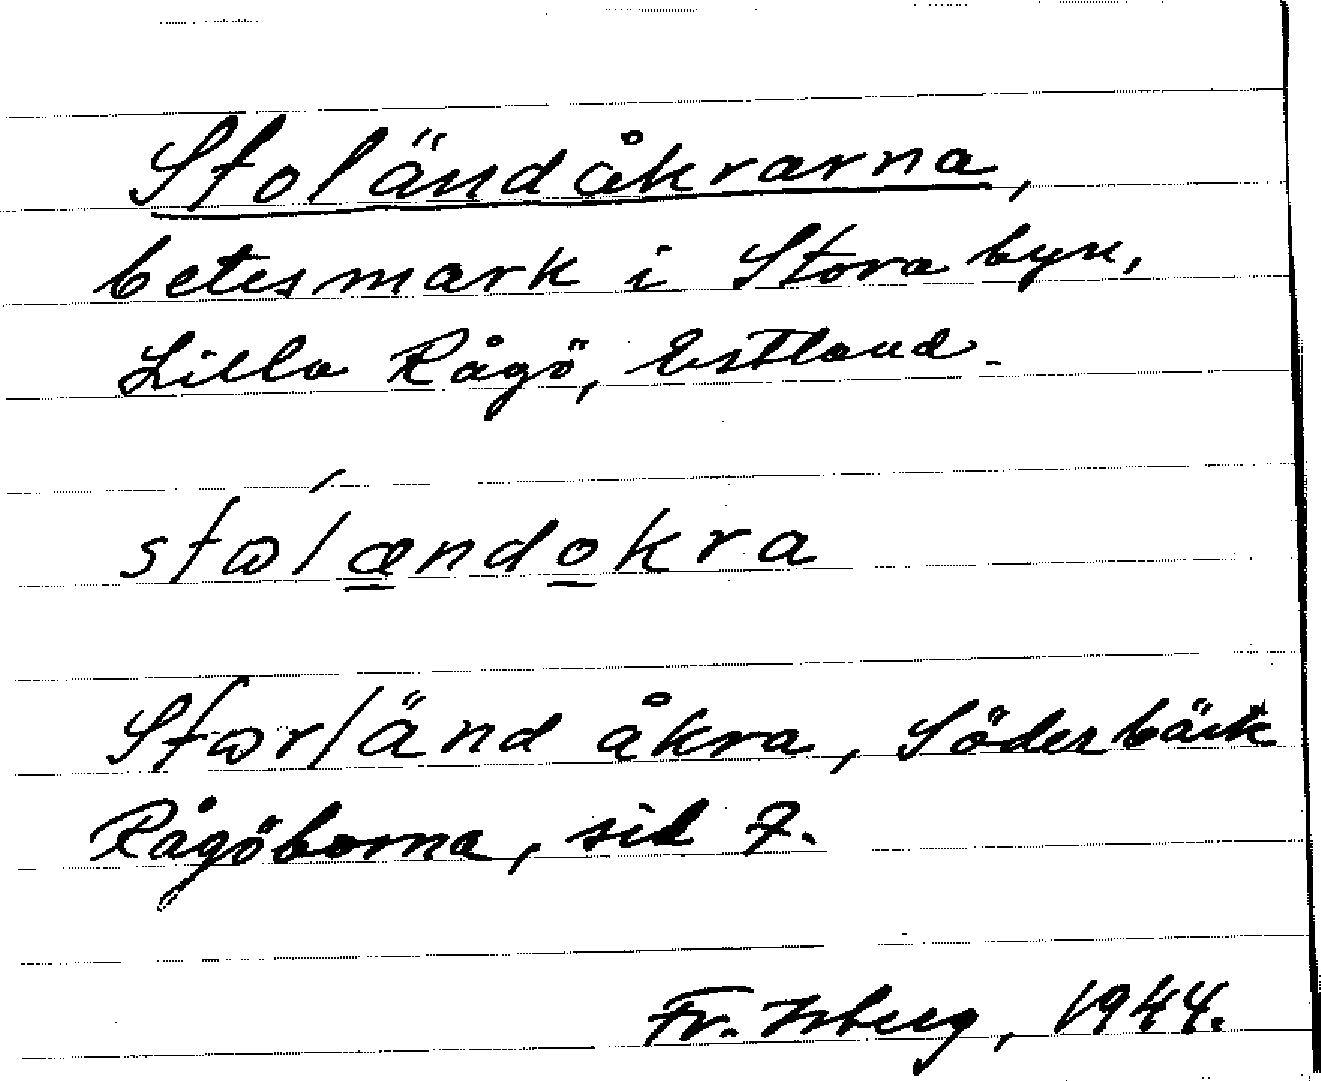 Stoländåkrarna,
betesmark i Stora byn,
Lilla Rågö, Estland.
stωlændokra
Stωrländ åkra, Söderbäck
Rågöborna, sid 7.
Fr. Isberg, 1944.